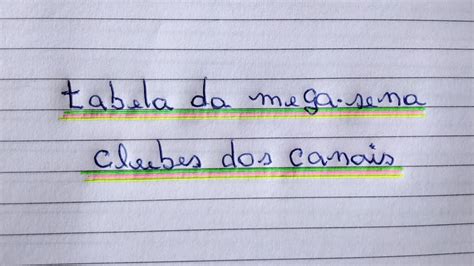 tabela da mega-sena
clubes dos canais